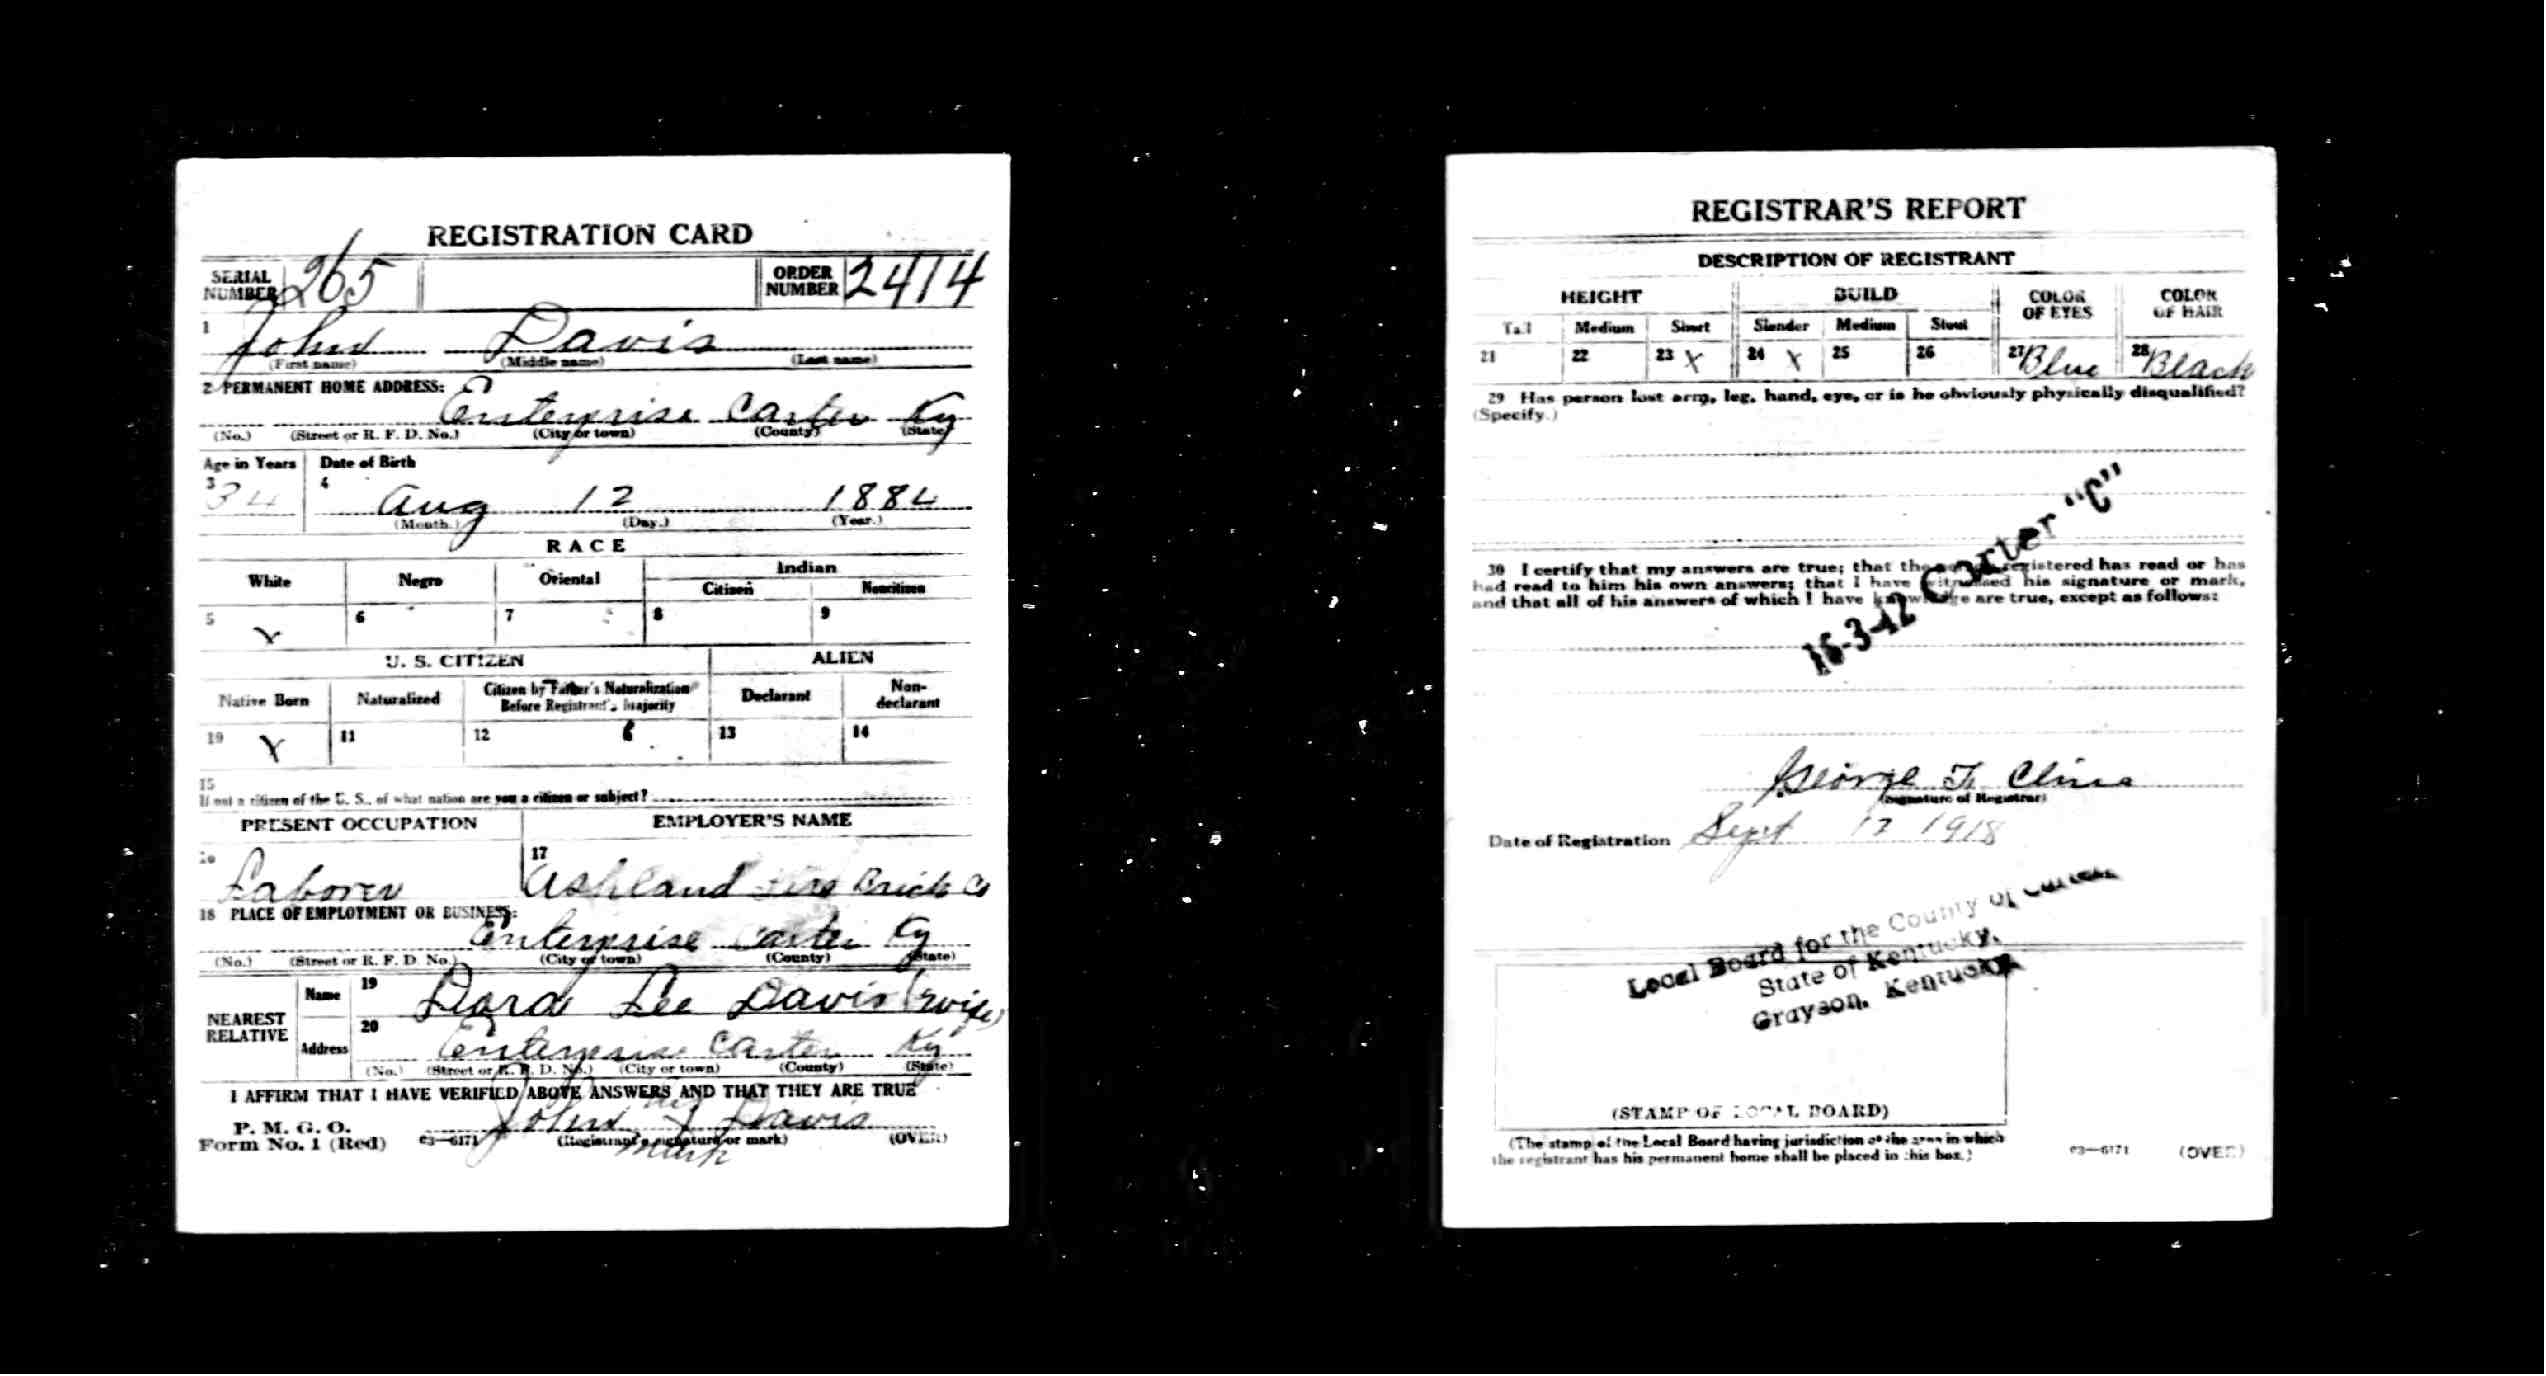 REGISTRATION CARD
SERIAL NUMBER 265 ORDER NUMBER 2414
1 John Davis
(First name) (Middle name) (Last name)
2 PERMANENT HOME ADDRESS:
Enterprise Carter Ky
(No.) (Street or R. F. D. No.) (City or town) (County) (State)
Age in Years Date of Birth
3 34 4 Aug 12 1884
(Month.) (Day.) (Year.)
RACE
White Negro Oriental Indian
Citizen Noncitizen
5 X 6 7 8 9
U. S. CITIZEN ALIEN
Native Born Naturalized Citizen by Father's Naturalization Before Registrant's Majority Declarant Non-declarant
10 X 11 12 13 14
15
If not a citizen of the U. S., of what nation are you a citizen or subject?
PRESENT OCCUPATION EMPLOYER'S NAME
16 Laborer 17 Ashland Fire Brick Co
18 PLACE OF EMPLOYMENT OR BUSINESS:
Enterprise Carter Ky
(No.) (Street or R. F. D. No.) (City or town) (County) (State)
NEAREST RELATIVE Name 19 Lee Davis (wife)
Address 20 Enterprise Carter Ky
(No.) (Street or R. F. D. No.) (City or town) (County) (State)
I AFFIRM THAT I HAVE VERIFIED ABOVE ANSWERS AND THAT THEY ARE TRUE
P. M. G. O.
Form No. 1 (Red) 03—6171 John his X Davis
(Registrant's signature or mark) (OVER)
mark
REGISTRAR'S REPORT
DESCRIPTION OF REGISTRANT
HEIGHT BUILD COLOR OF EYES COLOR OF HAIR
Tall Medium Short Slender Medium Stout
21 22 23 X 24 X 25 26 27 Blue 28 Black
29 Has person lost arm, leg, hand, eye, or is he obviously physically disqualified?
(Specify.)
16-3-12 Carter "C"
30 I certify that my answers are true; that the person registered has read or has
had read to him his own answers; that I have witnessed his signature or mark,
and that all of his answers of which I have knowledge are true, except as follows:
George
(Signature of Registrar)
Date of Registration Sept 12 1918
Local Board for the County of Carter,
State of Kentucky,
Grayson, Kentucky
(STAMP OF LOCAL BOARD)
(The stamp of the Local Board having jurisdiction of the area in which
the registrant has his permanent home shall be placed in this box.)
03—6171 (OVER)